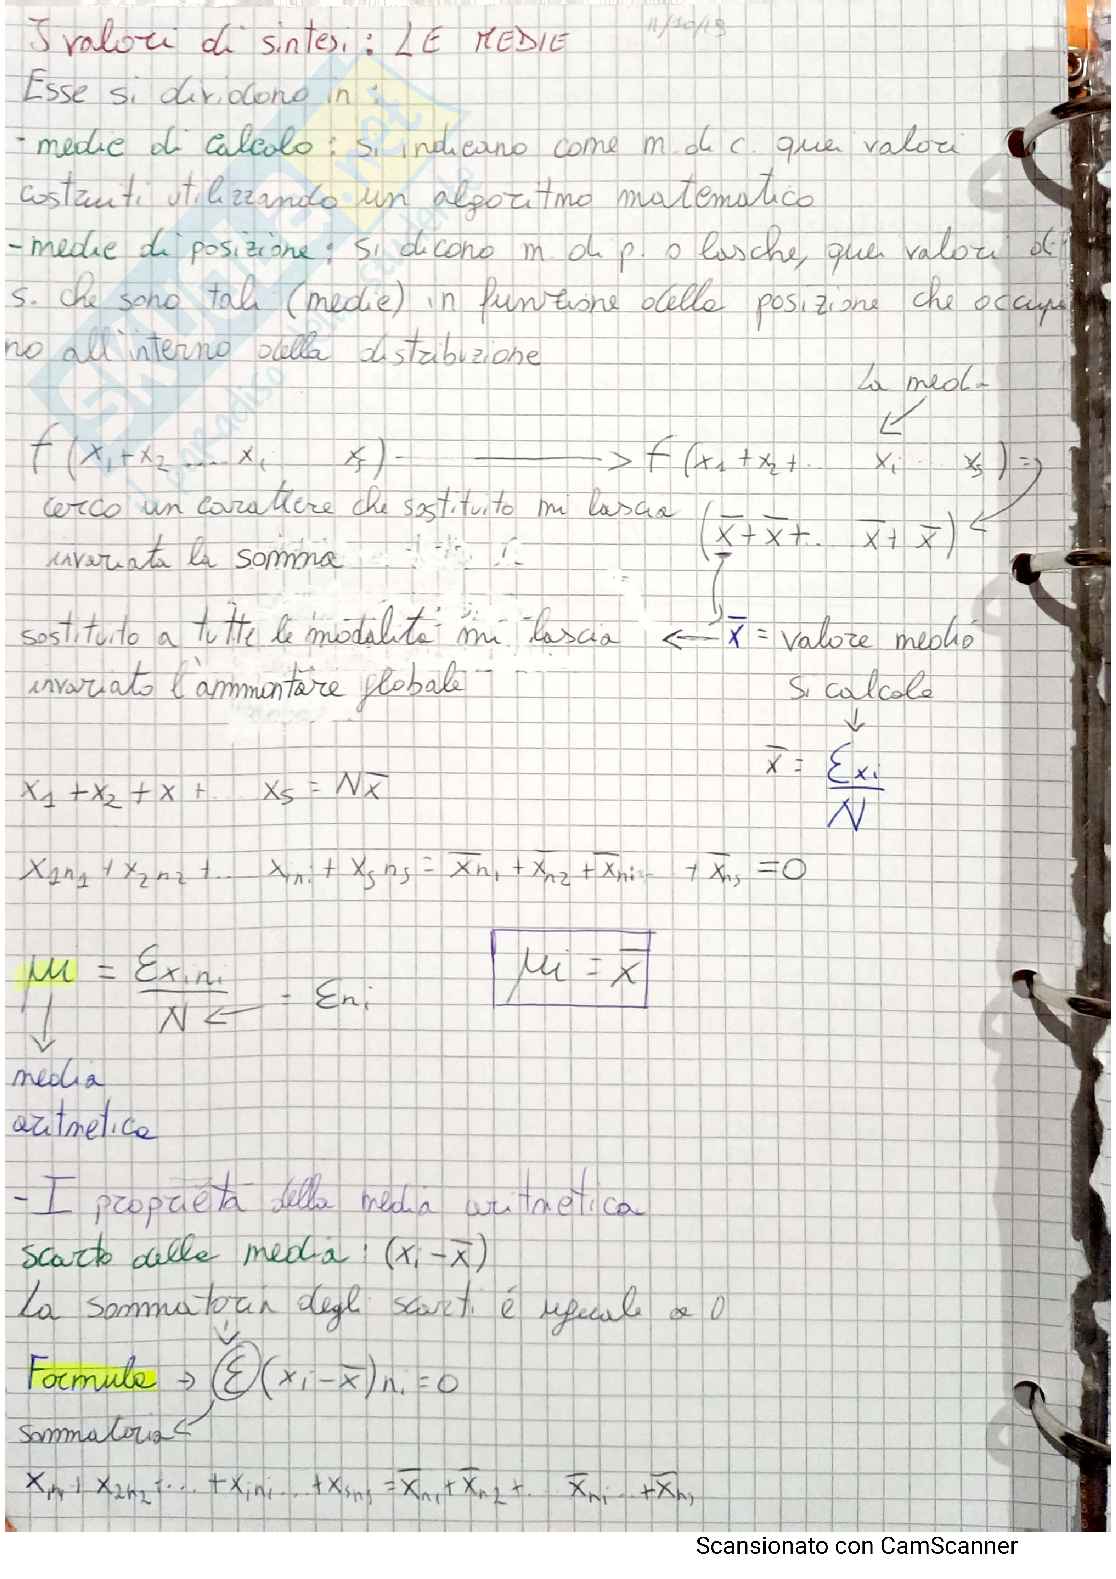 I valori di sintesi: LE MEDIE 11/10/19
Esse si dividono in:
- medie di calcolo: si indicano come m. di c. quei valori
costruiti utilizzando un algoritmo matematico
- medie di posizione: si dicono m. di p. o lasche, quei valori di
s. che sono tali (medie) in funzione della posizione che occupa
no all'interno della distribuzione
La media
f(x₁+x₂ ..... xᵢ xₛ) - → f(x₁+x₂+.. xᵢ ... xₛ) =
cerco un carattere che sostituito mi lascia (x̄+x̄+.. x̄+x̄)
invariata la somma
sostituito a tutte le modalità mi lascia ← x̄ = valore medio
invariato l'ammontare globale si calcola
x̄ = Σxᵢ/N
x₁+x₂+x+.. x₅ = Nx̄
x₁n₁+x₂n₂+... xᵢnᵢ+x₅n₅ = x̄n₁+x̄n₂+x̄nᵢ... +x̄nₛ =0
μ = Σxᵢnᵢ/N ← = Σnᵢ μi = x̄
media
aritmetica
- I proprietà della media aritmetica
scarto dalla media: (xᵢ-x̄)
La sommatoria degli scarti é uguale a 0
Formula → Σ(xᵢ-x̄)nᵢ=0
sommatoria
x₂n₂+... +xᵢnᵢ... +xₛnₛ = x̄n₁+x̄n₂+.. x̄nᵢ...+x̄nₛ
SKUOLA.net
il paradiso dello studente
Scansionato con CamScanner